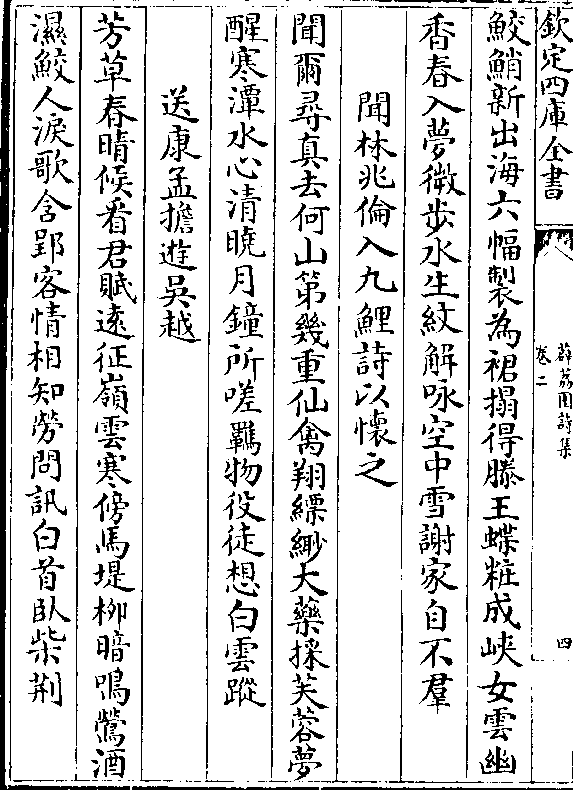 欽定四庫全書
薜荔園詩集
卷二
四
鮫鮹新出海六幅製為裙搨得滕王蝶粧成峽女雲幽
香春入夢微步水生紋解咏空中雪謝家自不羣
聞林兆倫入九鯉詩以懷之
聞爾尋真去何山第幾重仙禽翔縹緲大藥採芙蓉夢
醒寒潭水心清曉月鐘所嗟羈物役徒想白雲蹤
送康孟擔遊吳越
芳草春晴候看君賦遠征嶺雲寒傍馬堤柳暗鳴鶯酒
濕鮫人淚歌含郢客情相知勞問訊白首臥柴荆